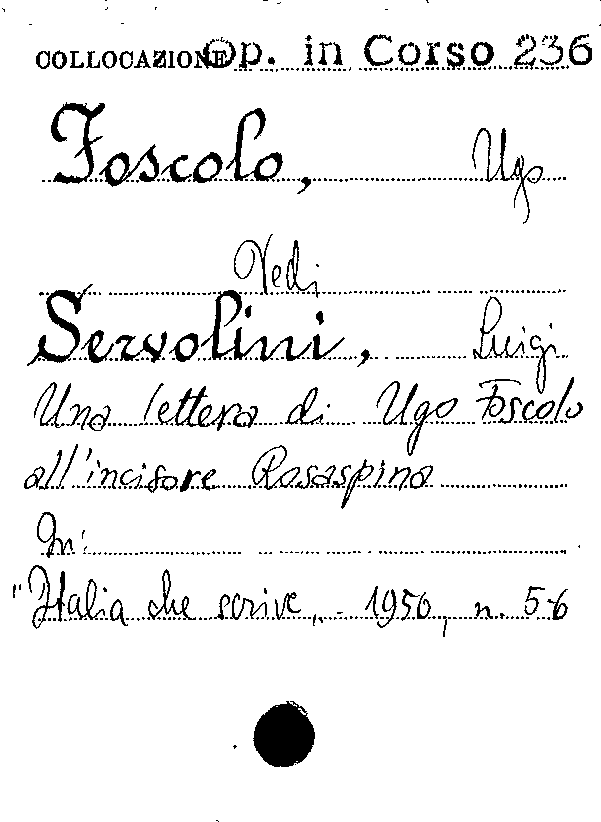 COLLOCAZIONE Op. in Corso 236
Foscolo, Ugo
Vedi
Servolini, Luigi
Una lettera di Ugo Foscolo
all'incisore Rosaspina
In:
"Italia che scrive„. 1950, n. 5-6